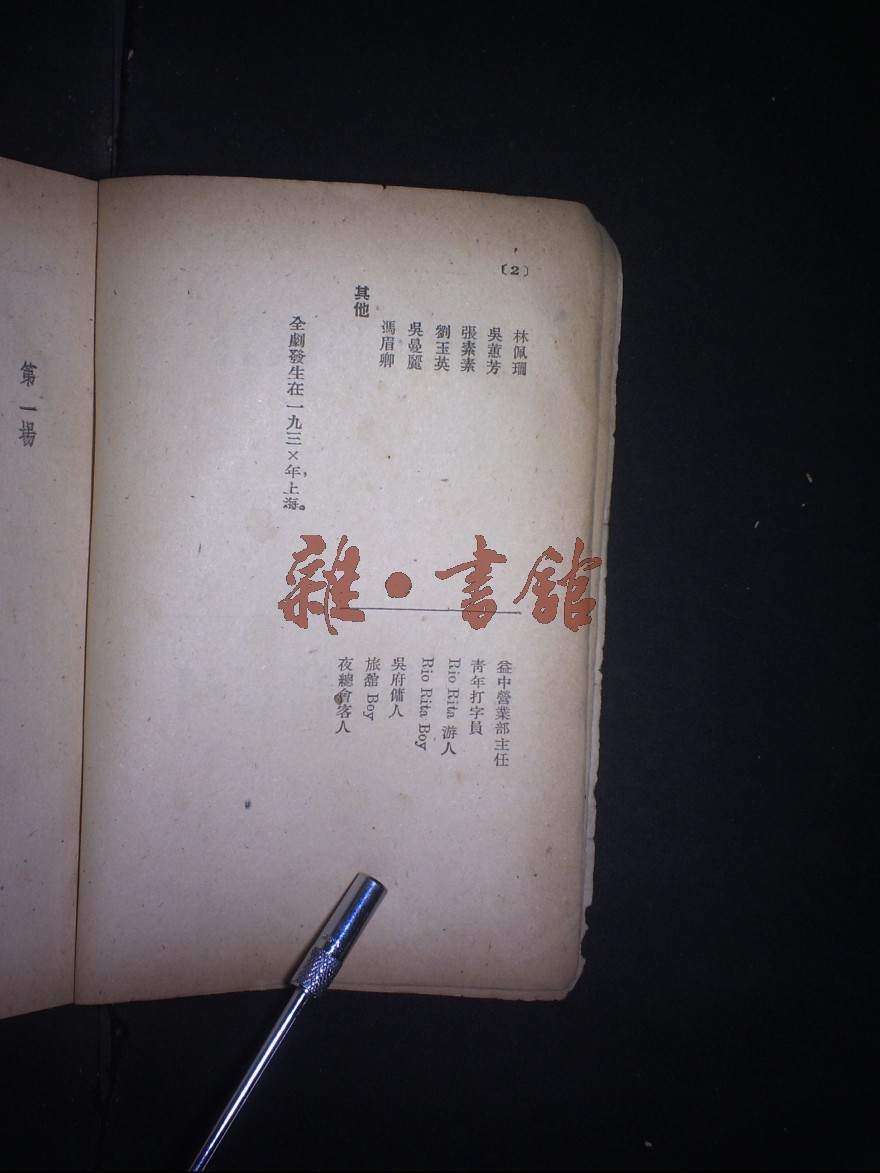 〔2〕
林佩珊
吳蕙芳
張素素
劉玉英
吳曼麗
馮眉卿
其他
全劇發生在一九三×年，上海。
益中營業部主任
青年打字員
Rio Rita 游人
Rio Rita Boy
吳府傭人
旅館 Boy
夜總會客人
第一場
雜·書館